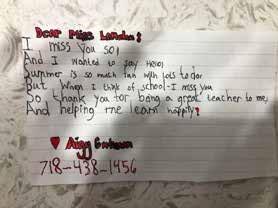 Dear Miss London:
I miss you so!
And I wanted to say Hello!
Summer is so much fun with lots to do!
But when I think of school-I miss you
So thank you for being a great teacher to me,
And helping me learn happily!
718-438-1456